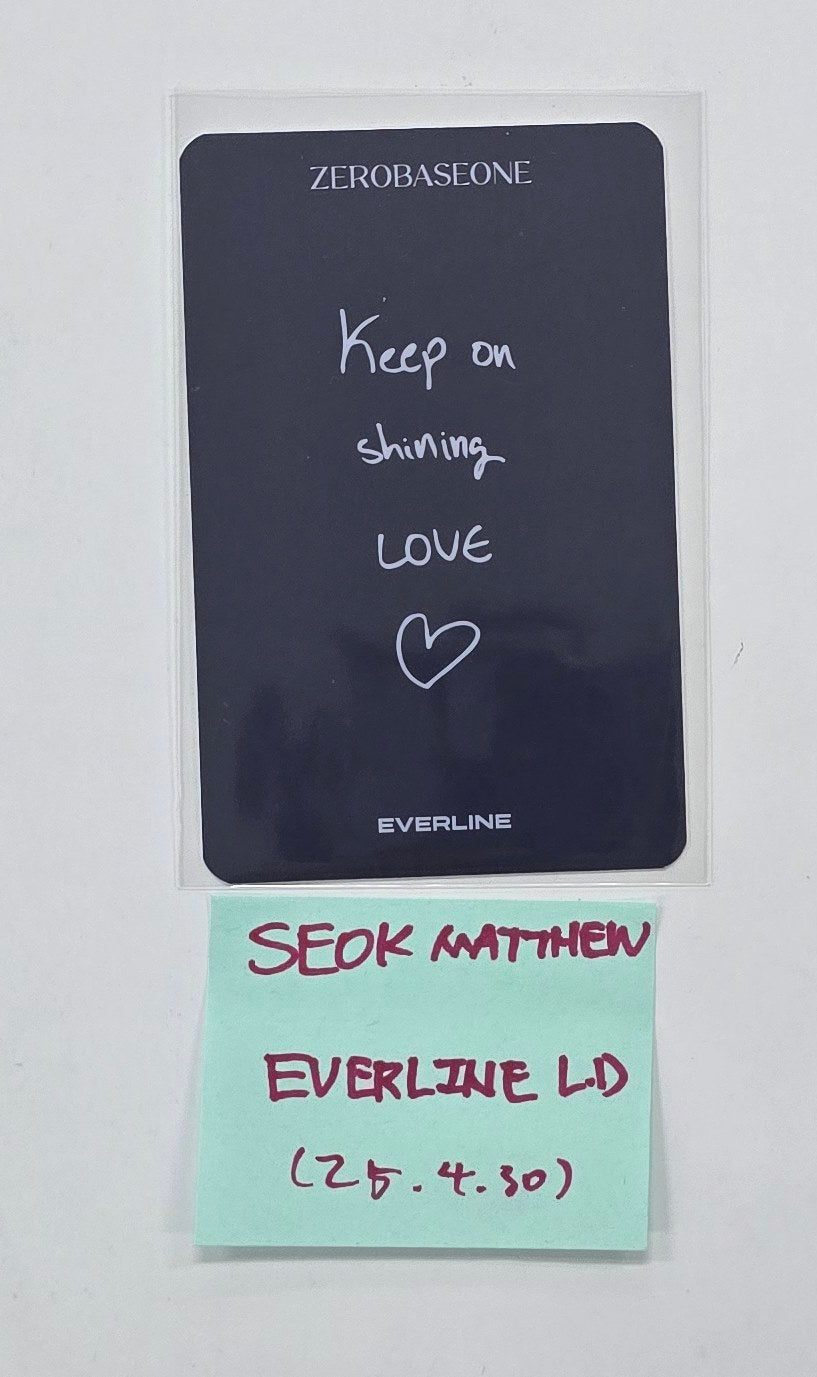 ZEROBASEONE
Keep on
shining
LOVE
EVERLINE
SEOK MATTHEW
EVERLINE L.D
(25.4.30)